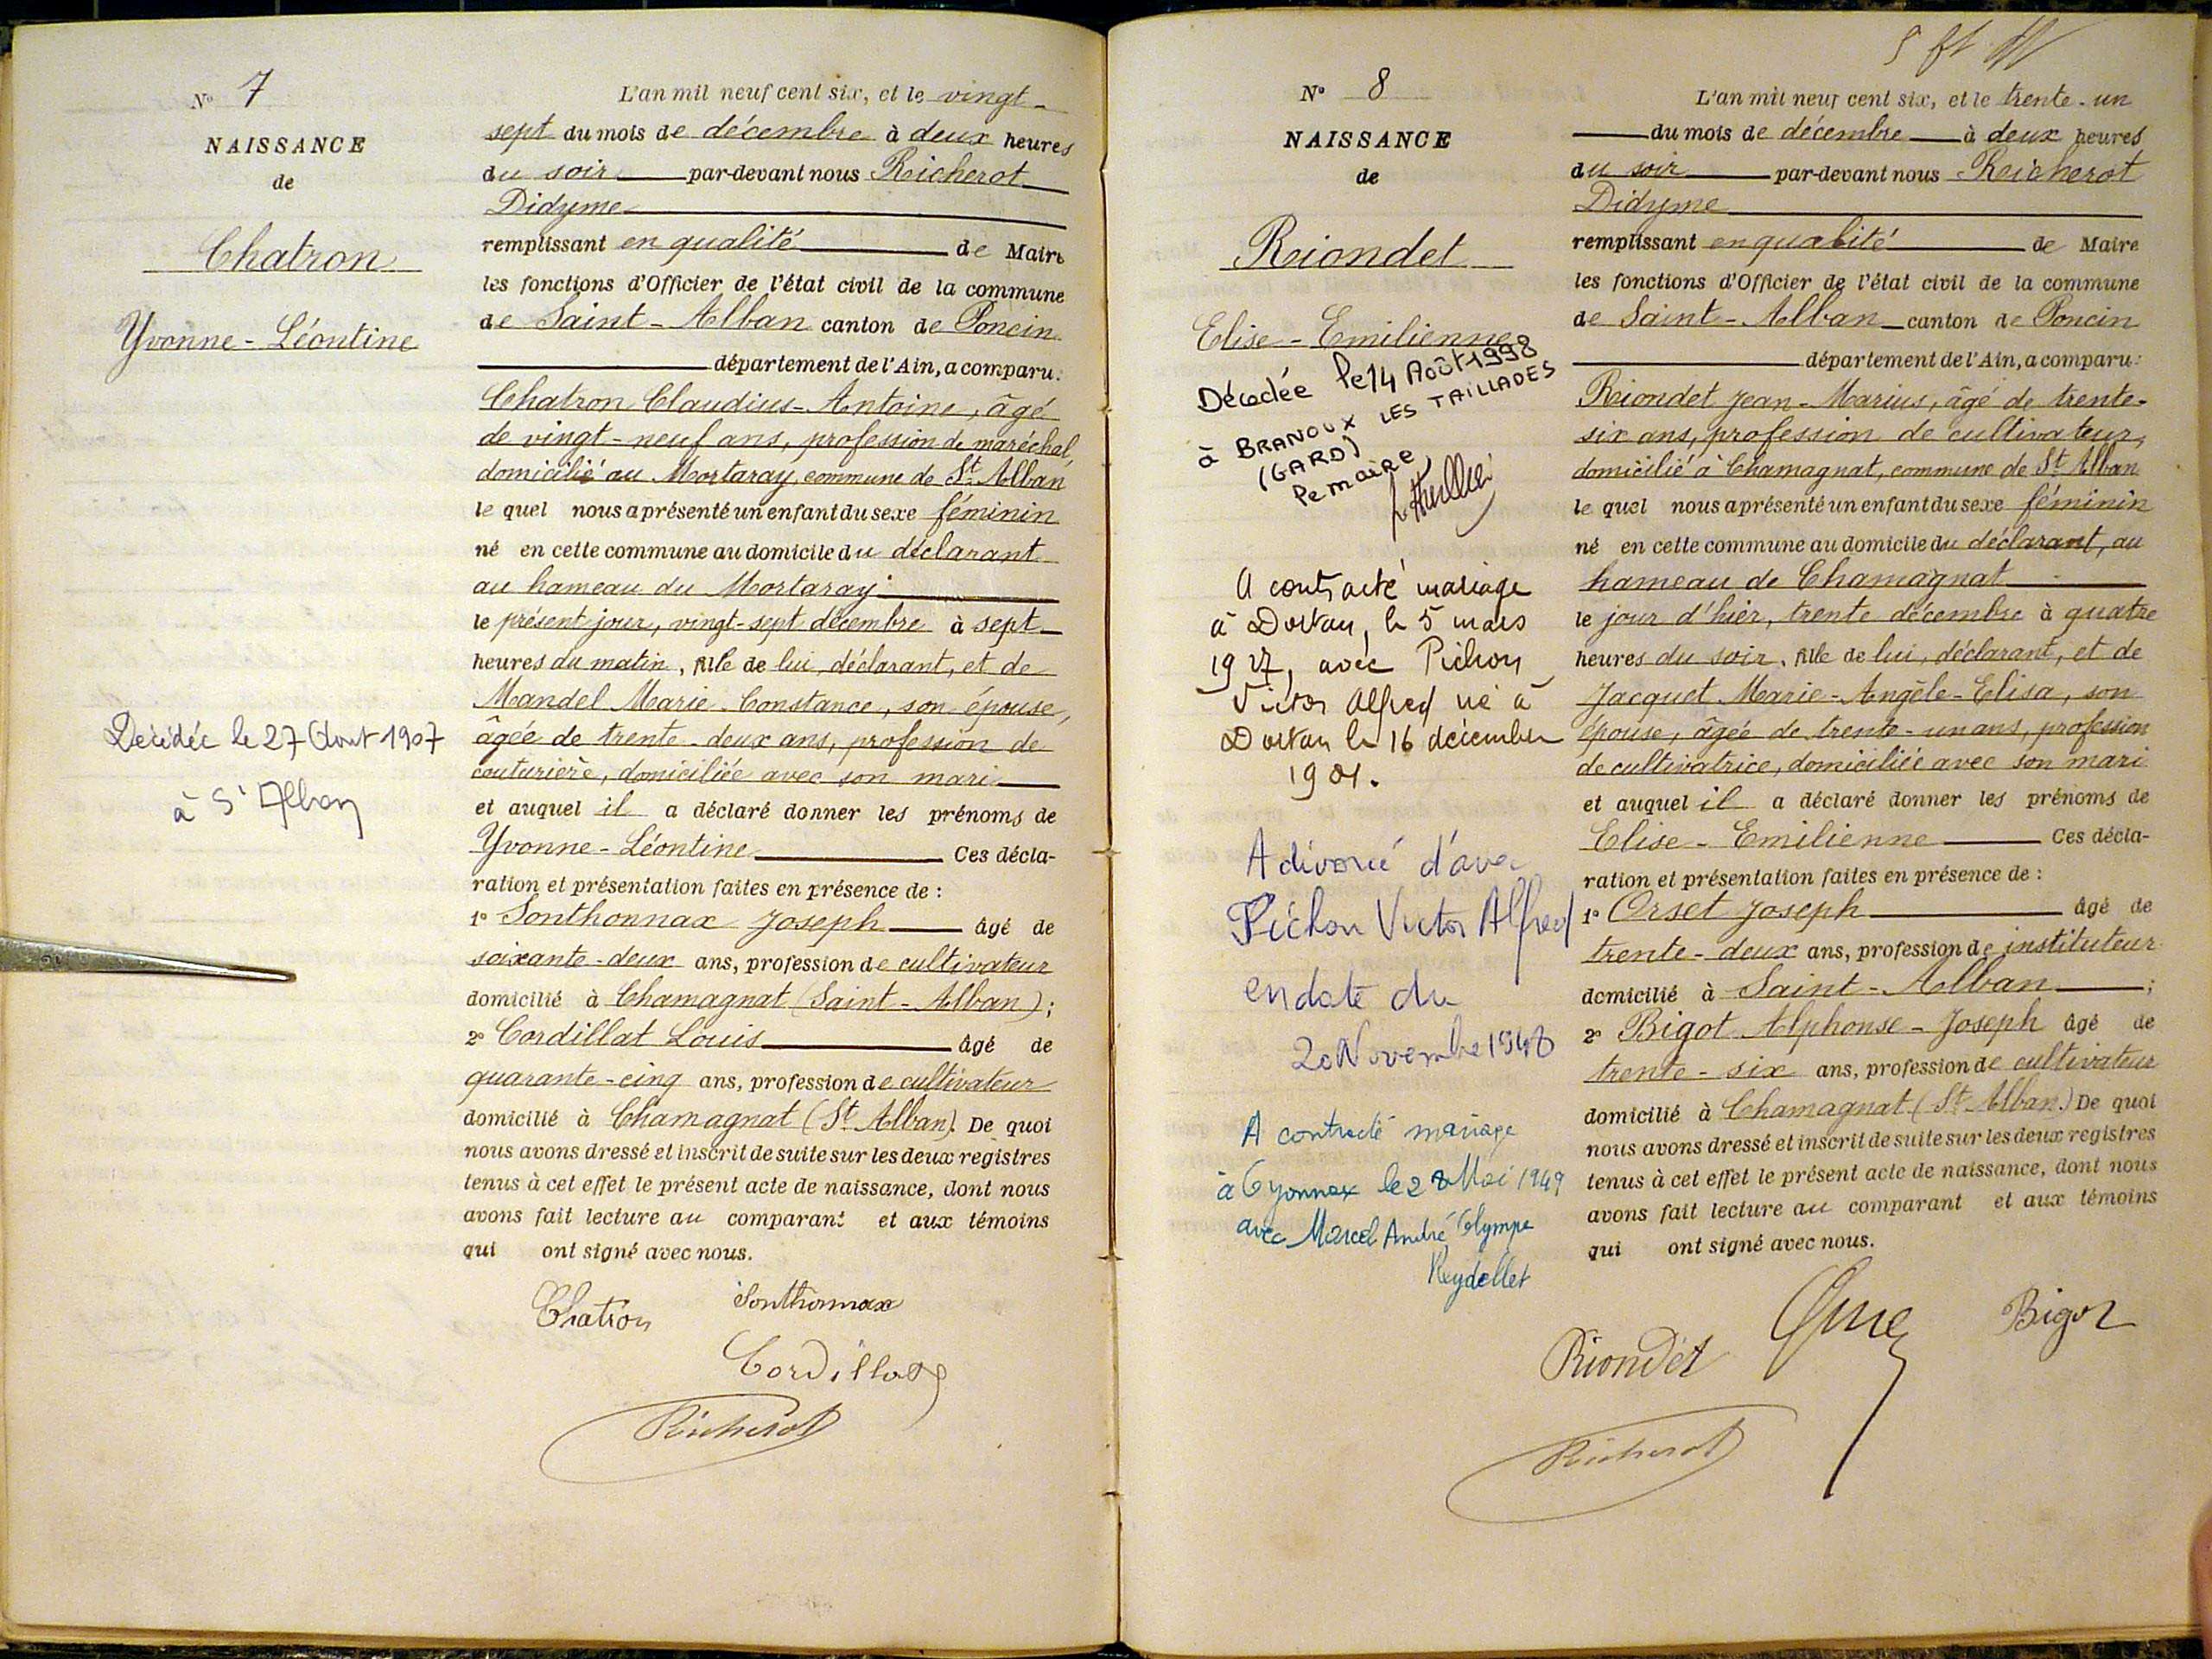 N° 7
NAISSANCE
de
Chatron
Yvonne-Léontine
Décédée le 27 Aout 1907
à St Alban
L'an mil neuf cent six, et le vingt-
sept du mois de décembre à deux heures
du soir par-devant nous Richerot
Didyme
remplissant en qualité de Maire
les fonctions d'Officier de l'état civil de la commune
de Saint-Alban canton de Poncin
département de l'Ain, a comparu:
Chatron Claudius-Antoine, âgé
de vingt-neuf ans, profession de maréchal,
domicilié au Mortaray, commune de St Alban
le quel nous a présenté un enfant du sexe féminin
né en cette commune au domicile du déclarant
au hameau du Mortaray
le présent jour, vingt-sept décembre à sept
heures du matin, fille de lui, déclarant, et de
Mandel Marie-Constance, son épouse,
âgée de trente-deux ans, profession de
couturière, domiciliée avec son mari
et auquel il a déclaré donner les prénoms de
Yvonne-Léontine Ces décla-
ration et présentation faites en présence de :
1° Sonthonnax Joseph âgé de
soixante-deux ans, profession de cultivateur
domicilié à Chamagnat (Saint-Alban);
2° Cordillat Louis âgé de
quarante-cinq ans, profession de cultivateur
domicilié à Chamagnat (St Alban). De quoi
nous avons dressé et inscrit de suite sur les deux registres
tenus à cet effet le présent acte de naissance, dont nous
avons fait lecture au comparant et aux témoins
qui ont signé avec nous.
Chatron Sonthonnax
Cordillat
Richerot
N° 8
NAISSANCE
de
Riondet
Elise-Emilienne
Décédée le 14 Août 1998
à BRANOUX LES TAILLADES
(GARD)
le maire
A contracté mariage
à Dortan, le 5 mars
1927, avec Pichon
Victor Alfred né à
Dortan le 16 décembre
1901.
A divorcé d'avec
Pichon Victor Alfred
en date du
20 Novembre 1948
A contracté mariage
à Oyonnax le 28 Mai 1949
avec Marcel André Olympe
Reydellet
L'an mil neuf cent six, et le trente-un
du mois de décembre à deux heures
du soir par-devant nous Richerot
Didyme
remplissant en qualité de Maire
les fonctions d'Officier de l'état civil de la commune
de Saint-Alban canton de Poncin
département de l'Ain, a comparu:
Riondet Jean-Marius, âgé de trente-
six ans, profession de cultivateur,
domicilié à Chamagnat, commune de St Alban
le quel nous a présenté un enfant du sexe féminin
né en cette commune au domicile du déclarant, au
hameau de Chamagnat
le jour d'hier, trente décembre à quatre
heures du soir, fille de lui, déclarant, et de
Jacquet Marie-Angèle-Elisa, son
épouse, âgée de trente-un ans, profession
de cultivatrice, domiciliée avec son mari
et auquel il a déclaré donner les prénoms de
Elise-Emilienne Ces décla-
ration et présentation faites en présence de :
1° Orset Joseph âgé de
trente-deux ans, profession de instituteur
domicilié à Saint-Alban ;
2° Bigot Alphonse-Joseph âgé de
trente-six ans, profession de cultivateur
domicilié à Chamagnat (St Alban.) De quoi
nous avons dressé et inscrit de suite sur les deux registres
tenus à cet effet le présent acte de naissance, dont nous
avons fait lecture au comparant et aux témoins
qui ont signé avec nous.
Riondet Bigot
Richerot